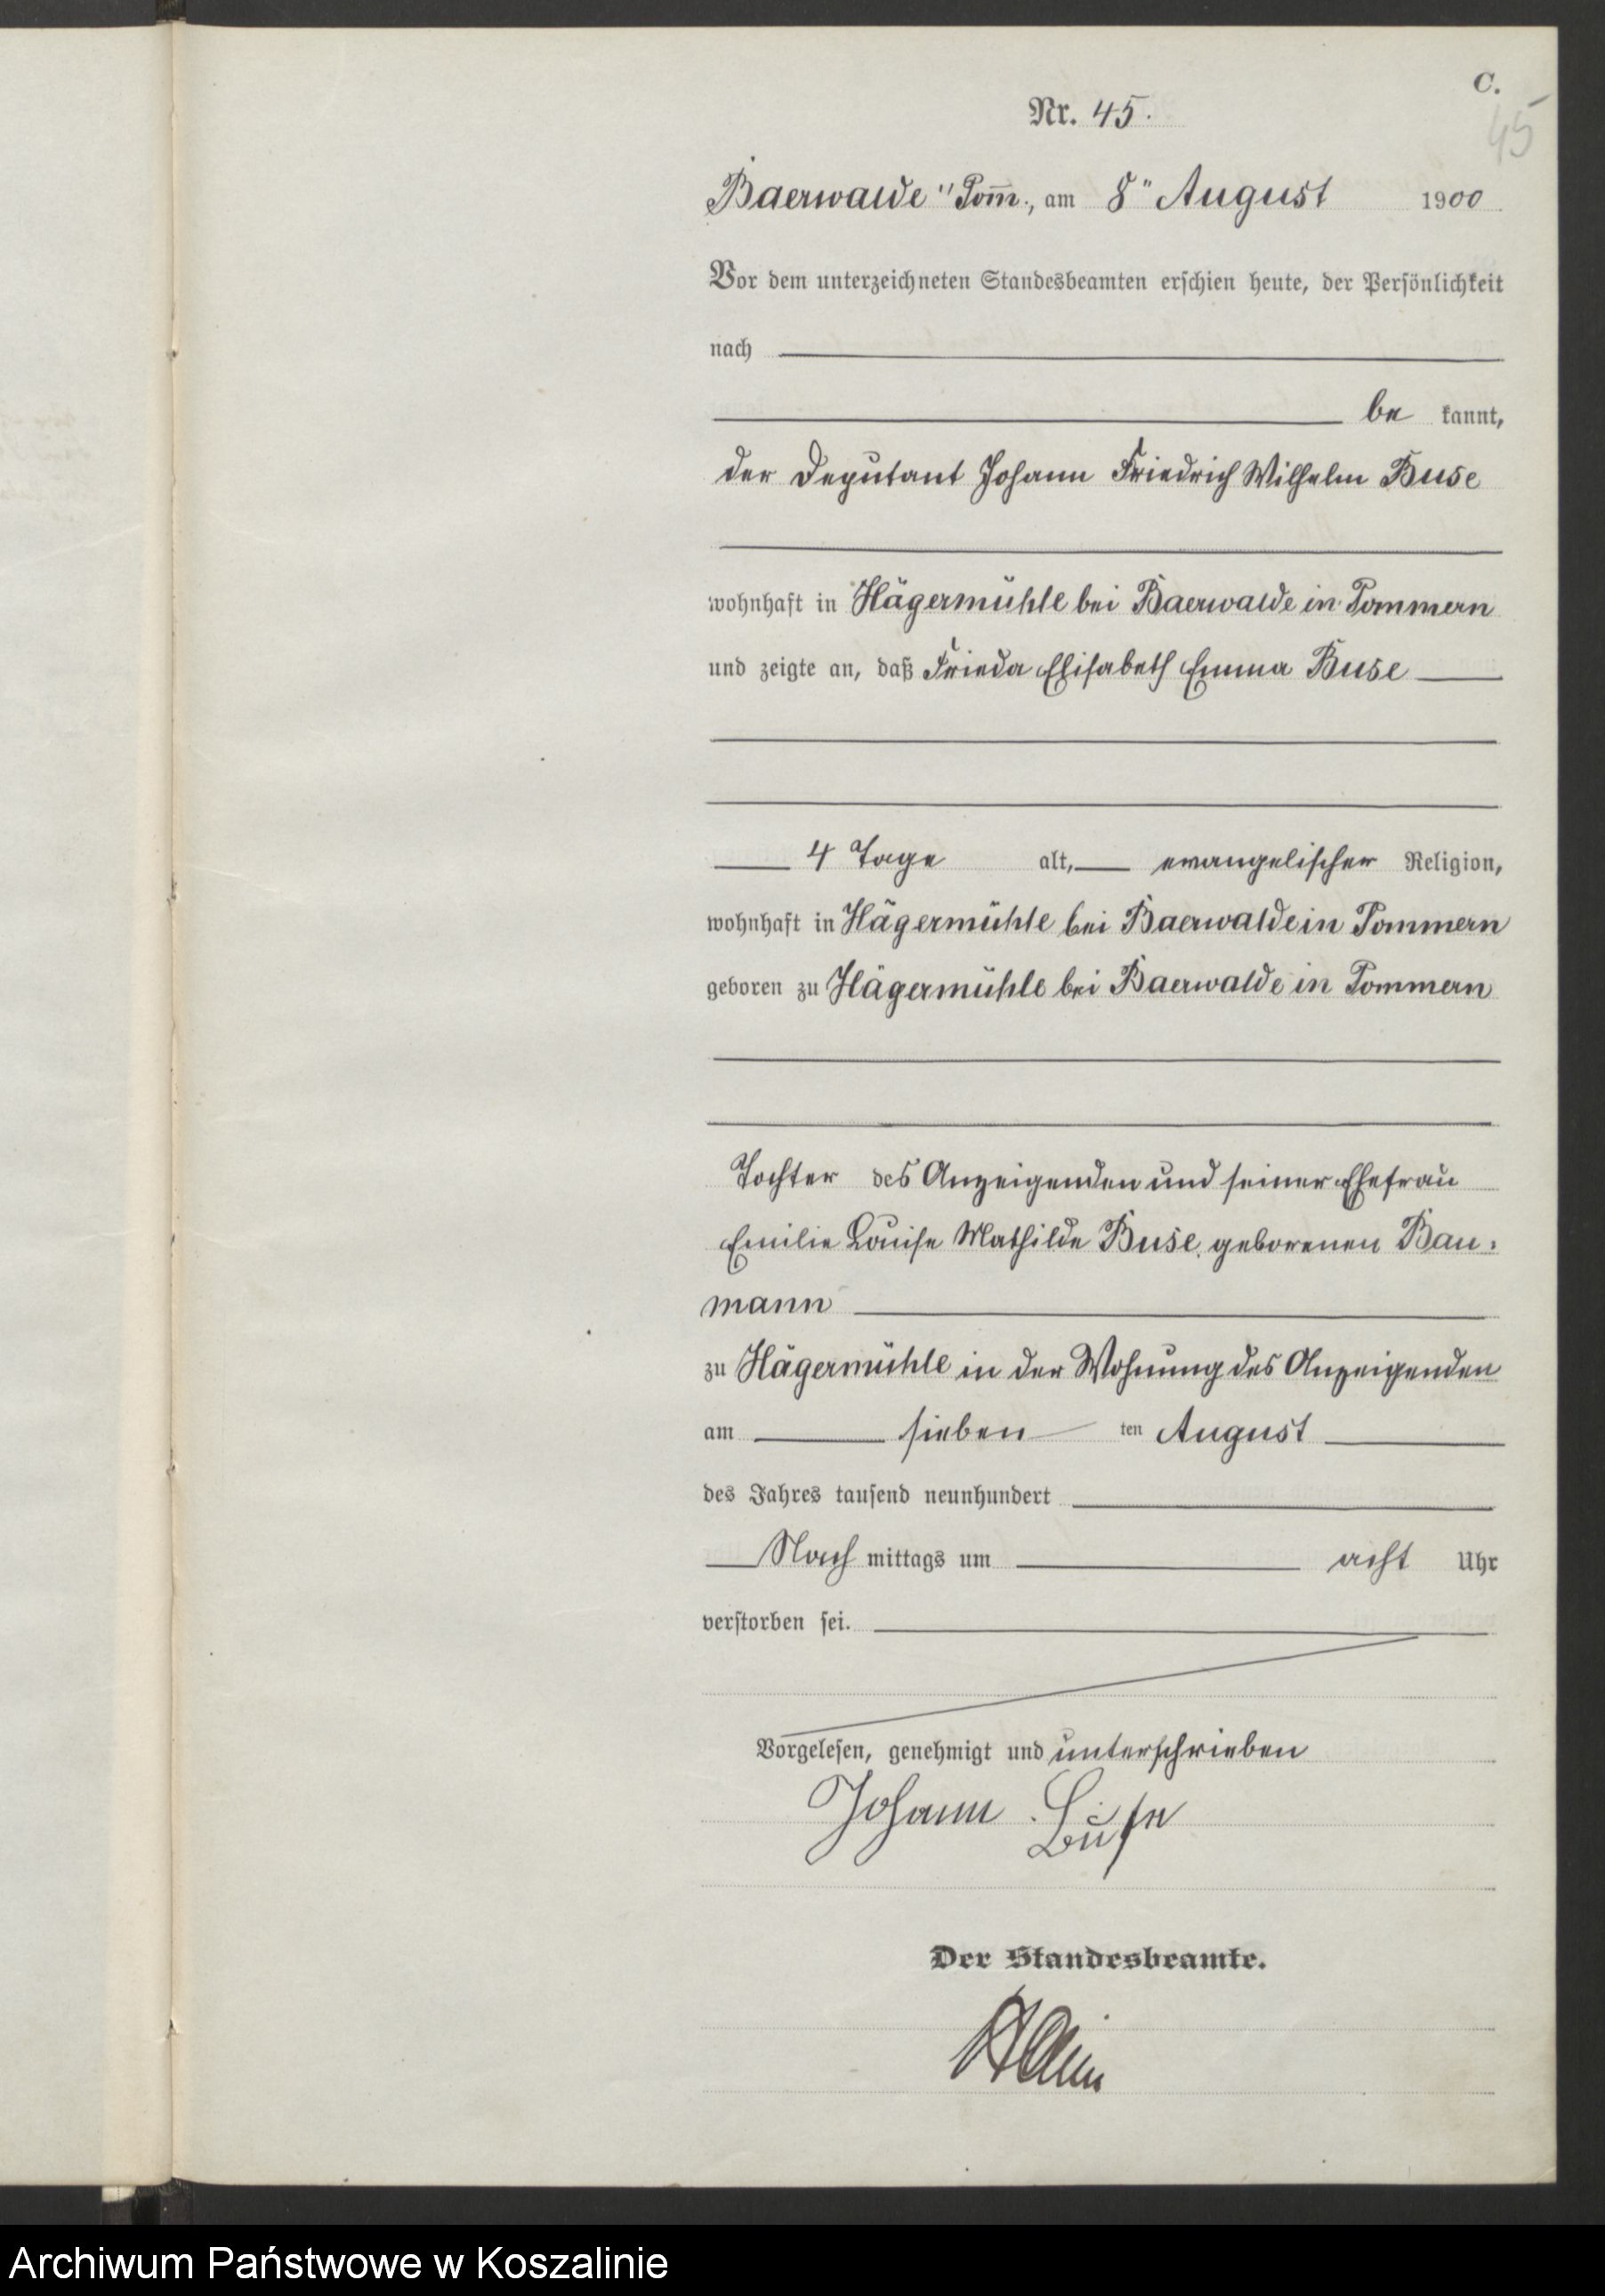 C.
Nr. 45.
45
Baerwalde i/ Pom̅., am 8" August 1900
Vor dem unterzeichneten Standesbeamten erschien heute, der Persönlichkeit
nach
be kannt,
der Deputant Johann Friedrich Wilhelm Buse
wohnhaft in Hägermühle bei Baerwalde in Pommern
und zeigte an, daß Frieda Elisabeth Emma Buse
4 Tage alt, evangelischer Religion,
wohnhaft in Hägermühle bei Baerwalde in Pommern
geboren zu Hägermühle bei Baerwalde in Pommern
Tochter des Anzeigenden und seiner Ehefrau
Emilie Louise Mathilde Buse, geborenen Bau-
mann
zu Hägermühle in der Wohnung des Anzeigenden
am sieben ten August
des Jahres tausend neunhundert
Nach mittags um acht Uhr
verstorben sei.
Vorgelesen, genehmigt und unterschrieben
Johann Buse
Der Standesbeamte.
Archiwum Państwowe w Koszalinie